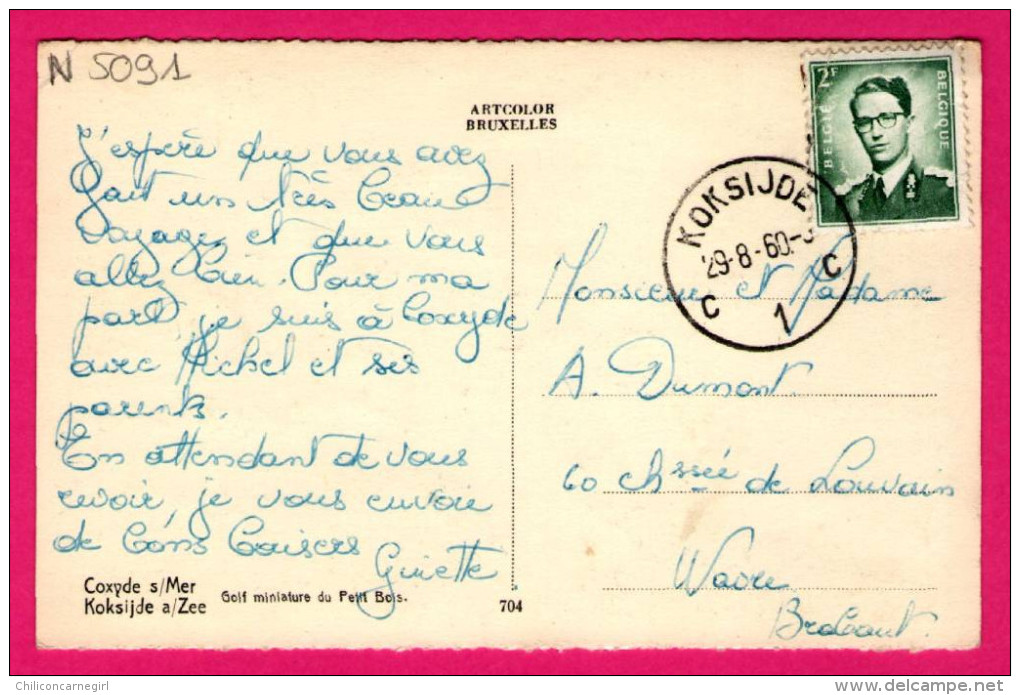 N 5091
ARTCOLOR
BRUXELLES
J'espère que vous avez
fait un très beau
voyage et que vous
allez bien. Pour ma
part je suis à Coxyde
avec Michel et ses
parents.
En attendant de vous
revoir, je vous envoie
de bons baisers
Ginette.
Coxyde s/Mer
Koksijde a/Zee
Golf miniature du Petit Bois.
704
2F
BELGIË
BELGIQUE
KOKSIJDE
29-8-60
C 1 C
Monsieur et Madame
A. Dumont
60 Chssée de Louvain
Wavre
Brabant.
Chiliconcarnegirl
http://www.delcampe.net